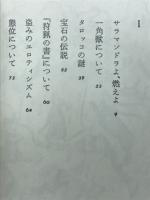 I
サラマンドラよ、燃えよ 9
一角獣について 23
タロッコの謎 39
宝石の伝説 52
『狩猟の書』について 60
盗みのエロティシズム 64
態位について 75